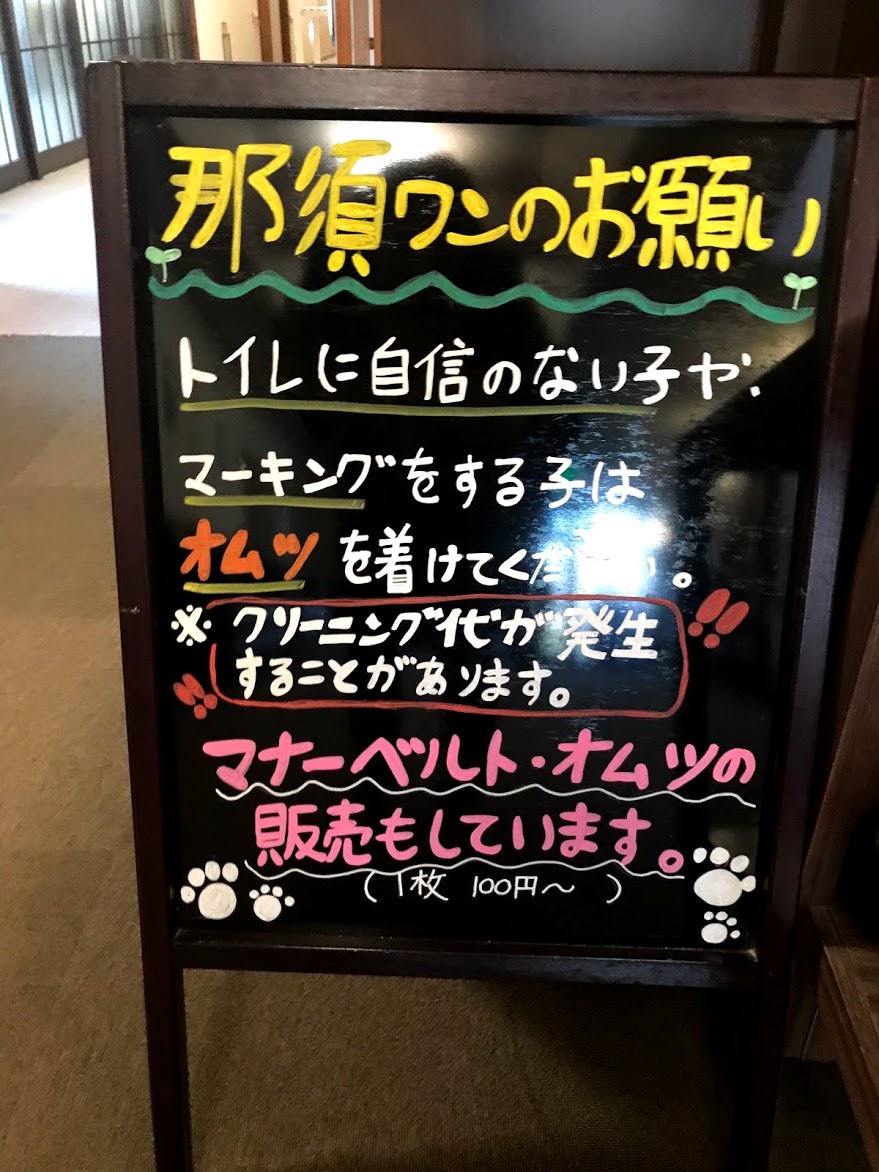 那須ワンのお願い
トイレに自信のない子や、
マーキングをする子は
オムツを着けてください。
※クリーニング代が発生
することがあります。
マナーベルト・オムツの
販売もしています。
(1枚 100円〜 )